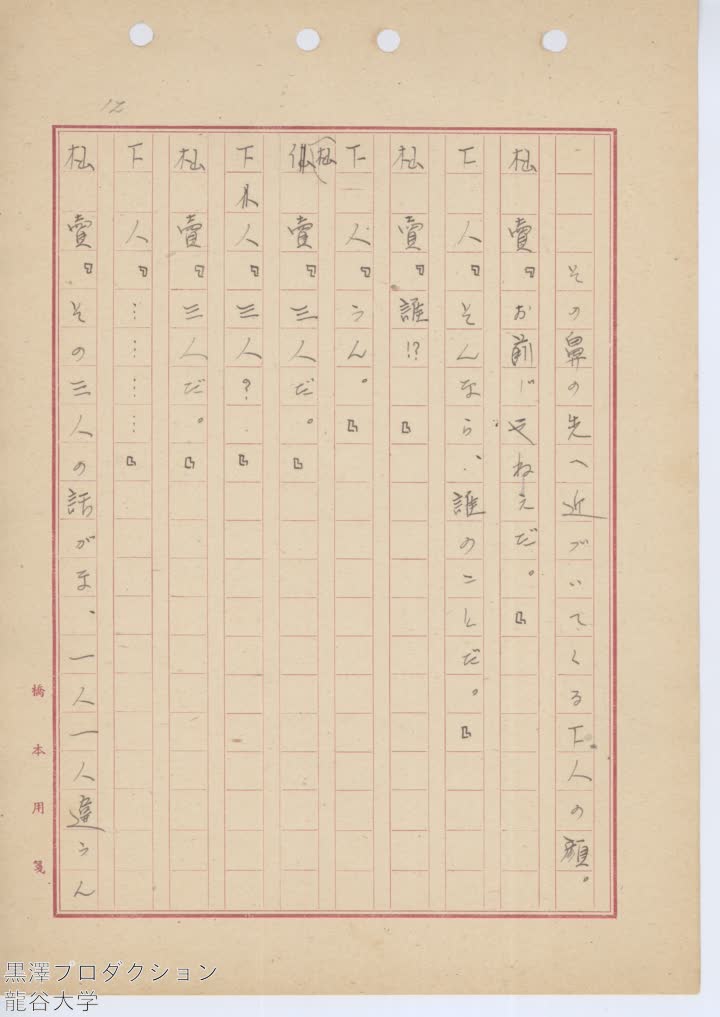 12
その鼻の先へ近づいてくる下人の顔。
杣　賣『お前じやねえだ。』
下　人『そんなら、誰のことだ。』
杣　賣『誰!?』
下　人『うん。』
杣　賣『三人だ。』
下　人『三人？』
杣　賣『三人だ。』
下　人『…………』
杣　賣『その三人の話がな、一人一人違うん
橋本用箋
黒澤プロダクション
龍谷大学